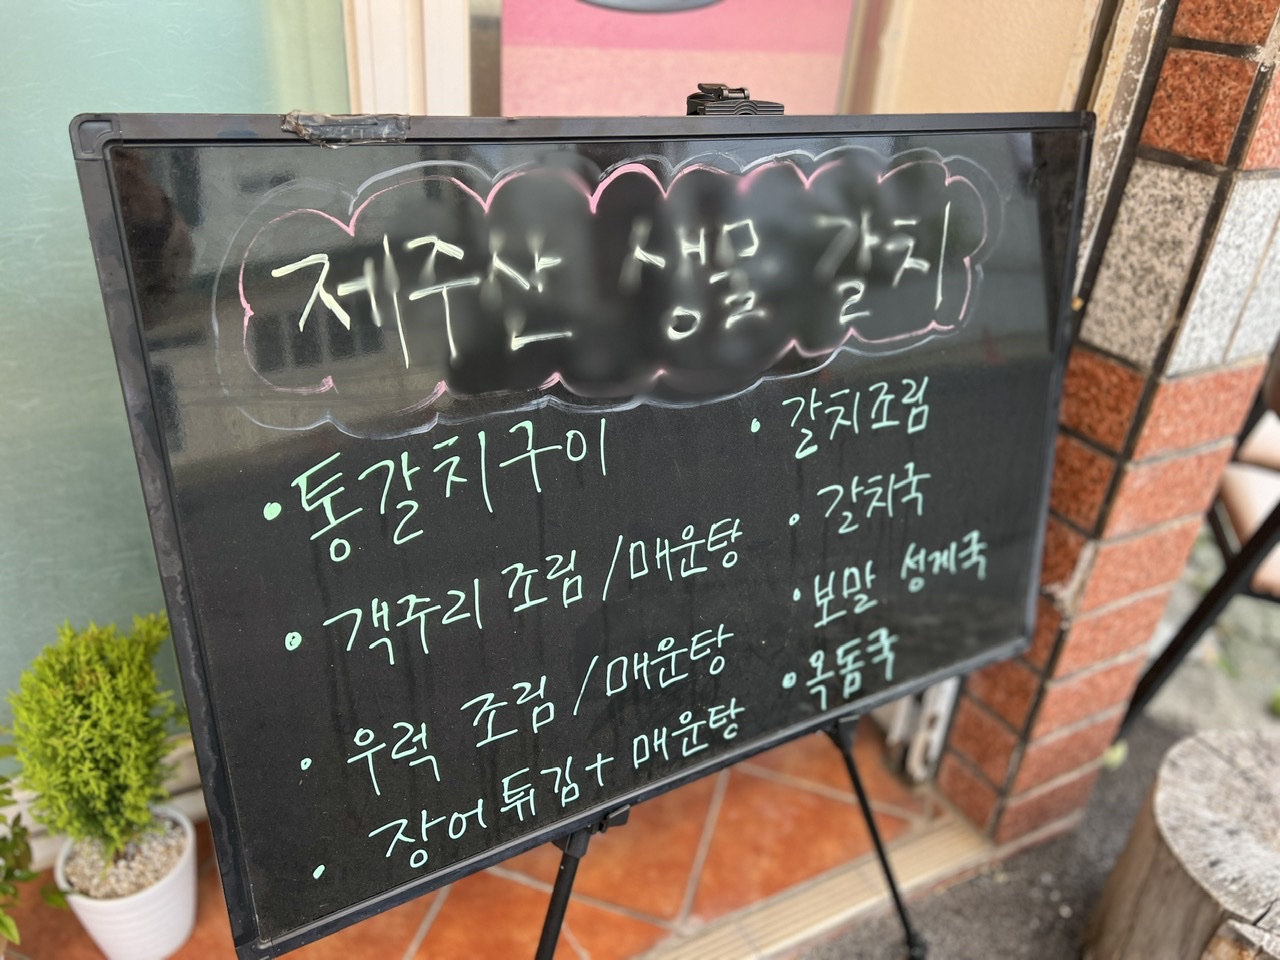 제주산 생물 갈치
• 통갈치구이
• 객주리 조림 / 매운탕
• 우럭 조림 / 매운탕
• 장어튀김 + 매운탕
• 갈치조림
• 갈치국
• 보말 성게국
• 옥돔국